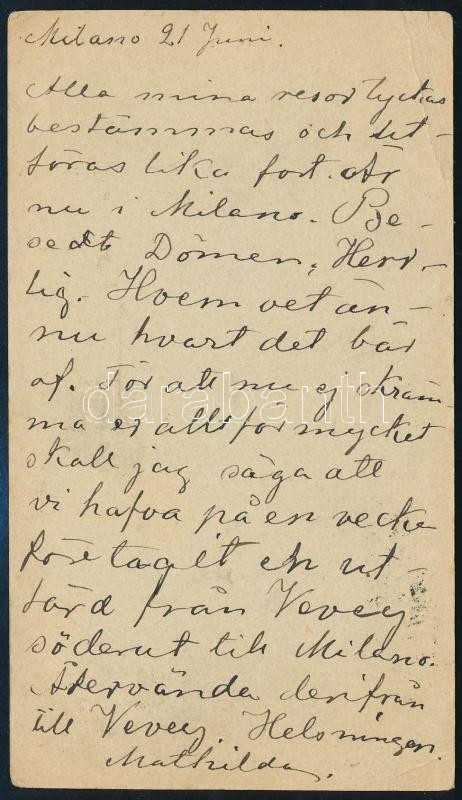 Milano 21 Juni.
Alla mina resor tyckas
bestämmas och ut-
föras lika fort. Är
nu i Milano. Be-
sedt Dômen, Herr-
lig. Hvem vet än-
nu hvart det bär
af. För att nu ej skräm-
ma er alltför mycket
skall jag säga att
vi hafva på en vecka
företagit en ut-
färd från Vevey
söderut till Milano.
Återvända derifrån
till Vevey. Helsningar.
Mathilda.
darabanth